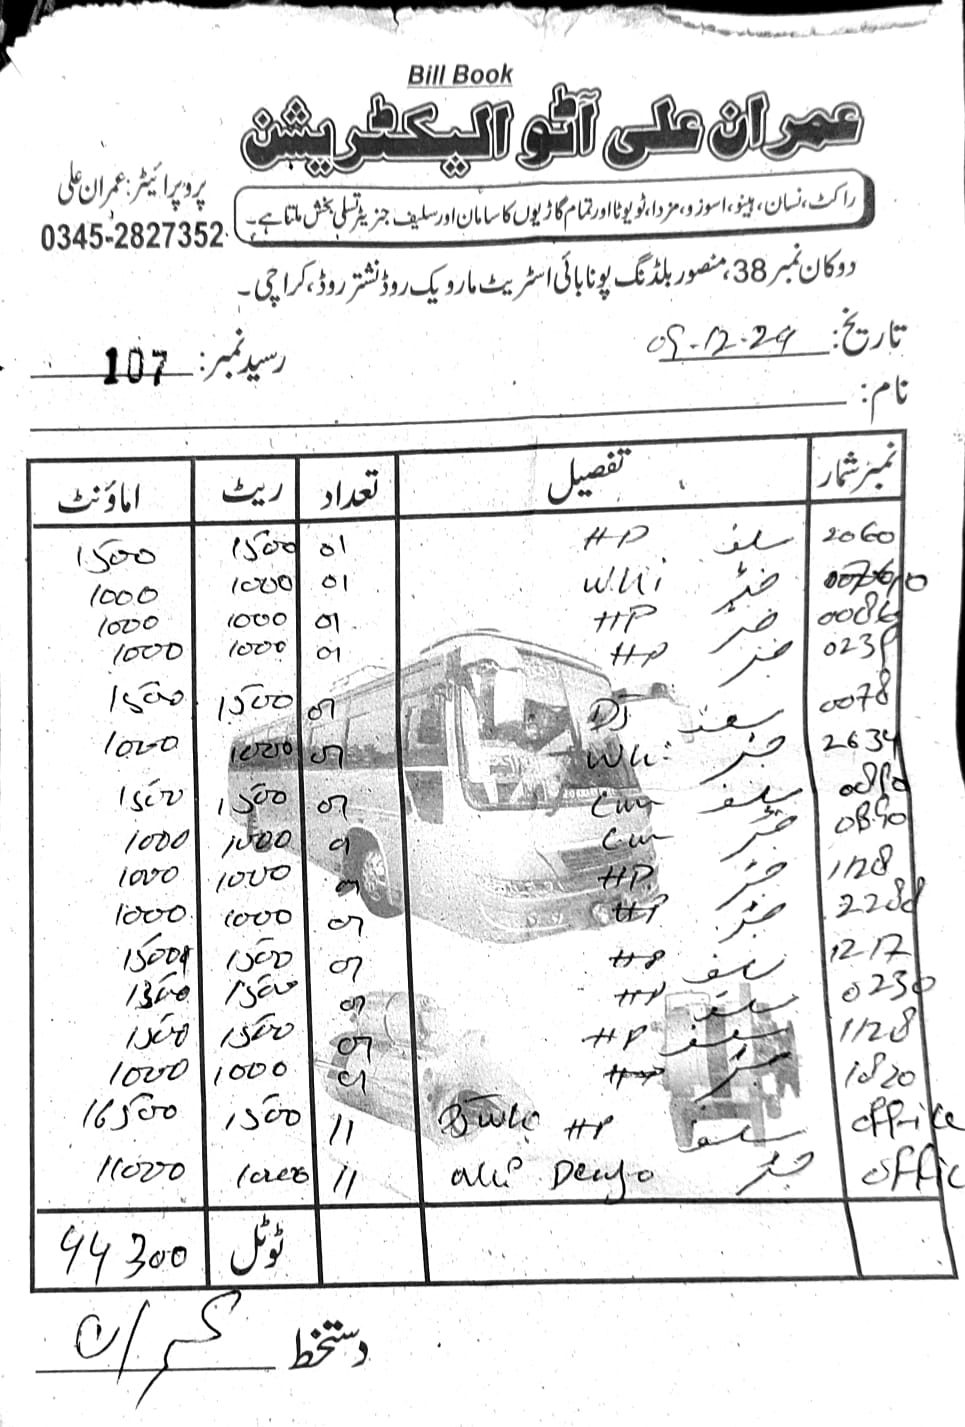 Bill Book
عمران علی آٹو الیکٹریشن
پروپرائیٹر: عمران علی
0345-2827352
راکٹ، نسان، ہینو، اسوزو، مزدا، ٹویوٹا اور تمام گاڑیوں کا سامان اور سلیف جنریٹر تسلی بخش ملتا ہے۔
دوکان نمبر 38، منصور بلڈنگ پونا بائی اسٹریٹ مارویک روڈ نشتر روڈ، کراچی۔
تاریخ: 09-12-24
رسید نمبر: 107
نام:
نمبر شمار تفصیل تعداد ریٹ اماؤنٹ
2060 سلف HP 01 1500 1500
01 1000 1000
HP 01 1000 1000
HP 01 1000 1000
0078 01 1500 1500
2634 01 1000 1000
سلف 01 1500 1500
01 1000 1000
1128 HP 01 1000 1000
HP 01 1000 1000
1217 سلف HP 01 1500 1500
0230 سلف HP 01 1500 1500
1128 سلف HP 01 1500 1500
1820 HP 01 1000 1000
office سلف HP 11 1500 16500
offic 11 1000 11000
ٹوٹل 44300
دستخط